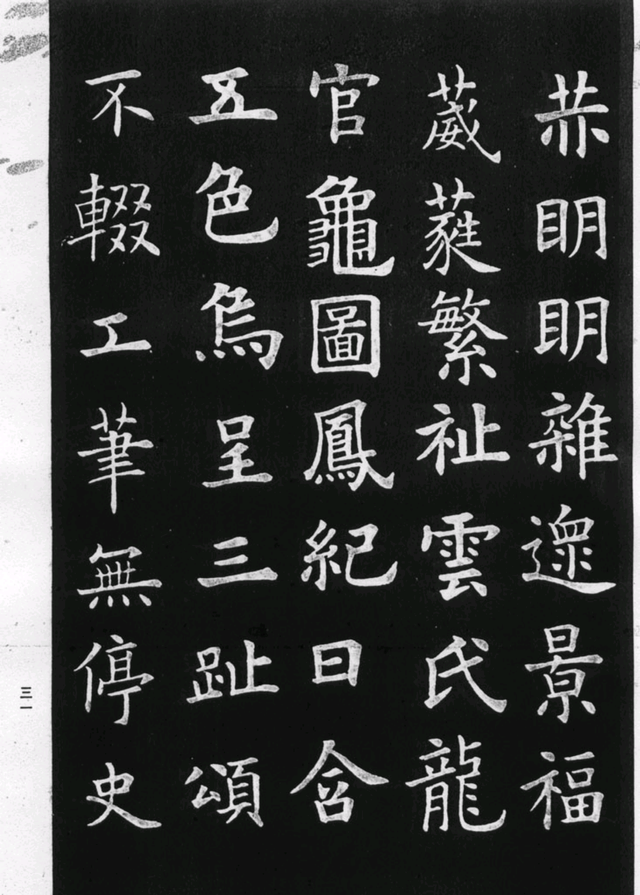 明明雜遝景福
葳蕤繁祉雲氏龍
官龜圖鳳紀日含
五色烏呈三趾頌
不輟工筆無停史
三一